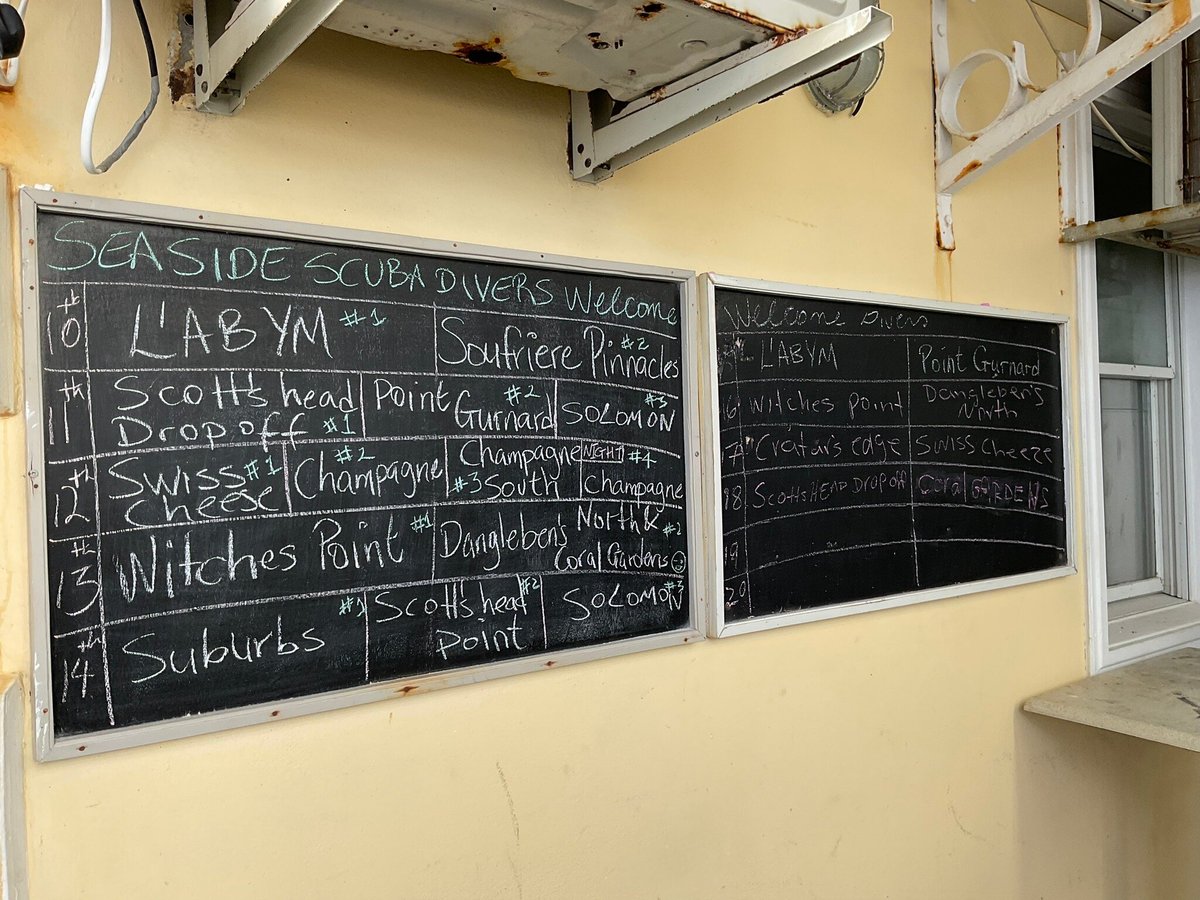 SEASIDE SCUBA DIVERS Welcome
10th L'ABYM #1 Soufriere Pinnacles #2
11th Scotts head Drop off #1 Point Gurnard #2 SOLOMON #3
12th Swiss Cheese #1 Champagne #2 Champagne South #3 NIGHT #4 Champagne
13th Witches Point #1 Dangleben's North & Coral Gardens #2
14th Suburbs #1 Scott's head Point #2 SOLOMON #3
Welcome Divers
L'ABYM Point Gurnard
16 Witches point Dangleben's North
17 Crater's edge Swiss Cheeze
18 Scotts HEAD Drop off Coral GARDENS
19
20